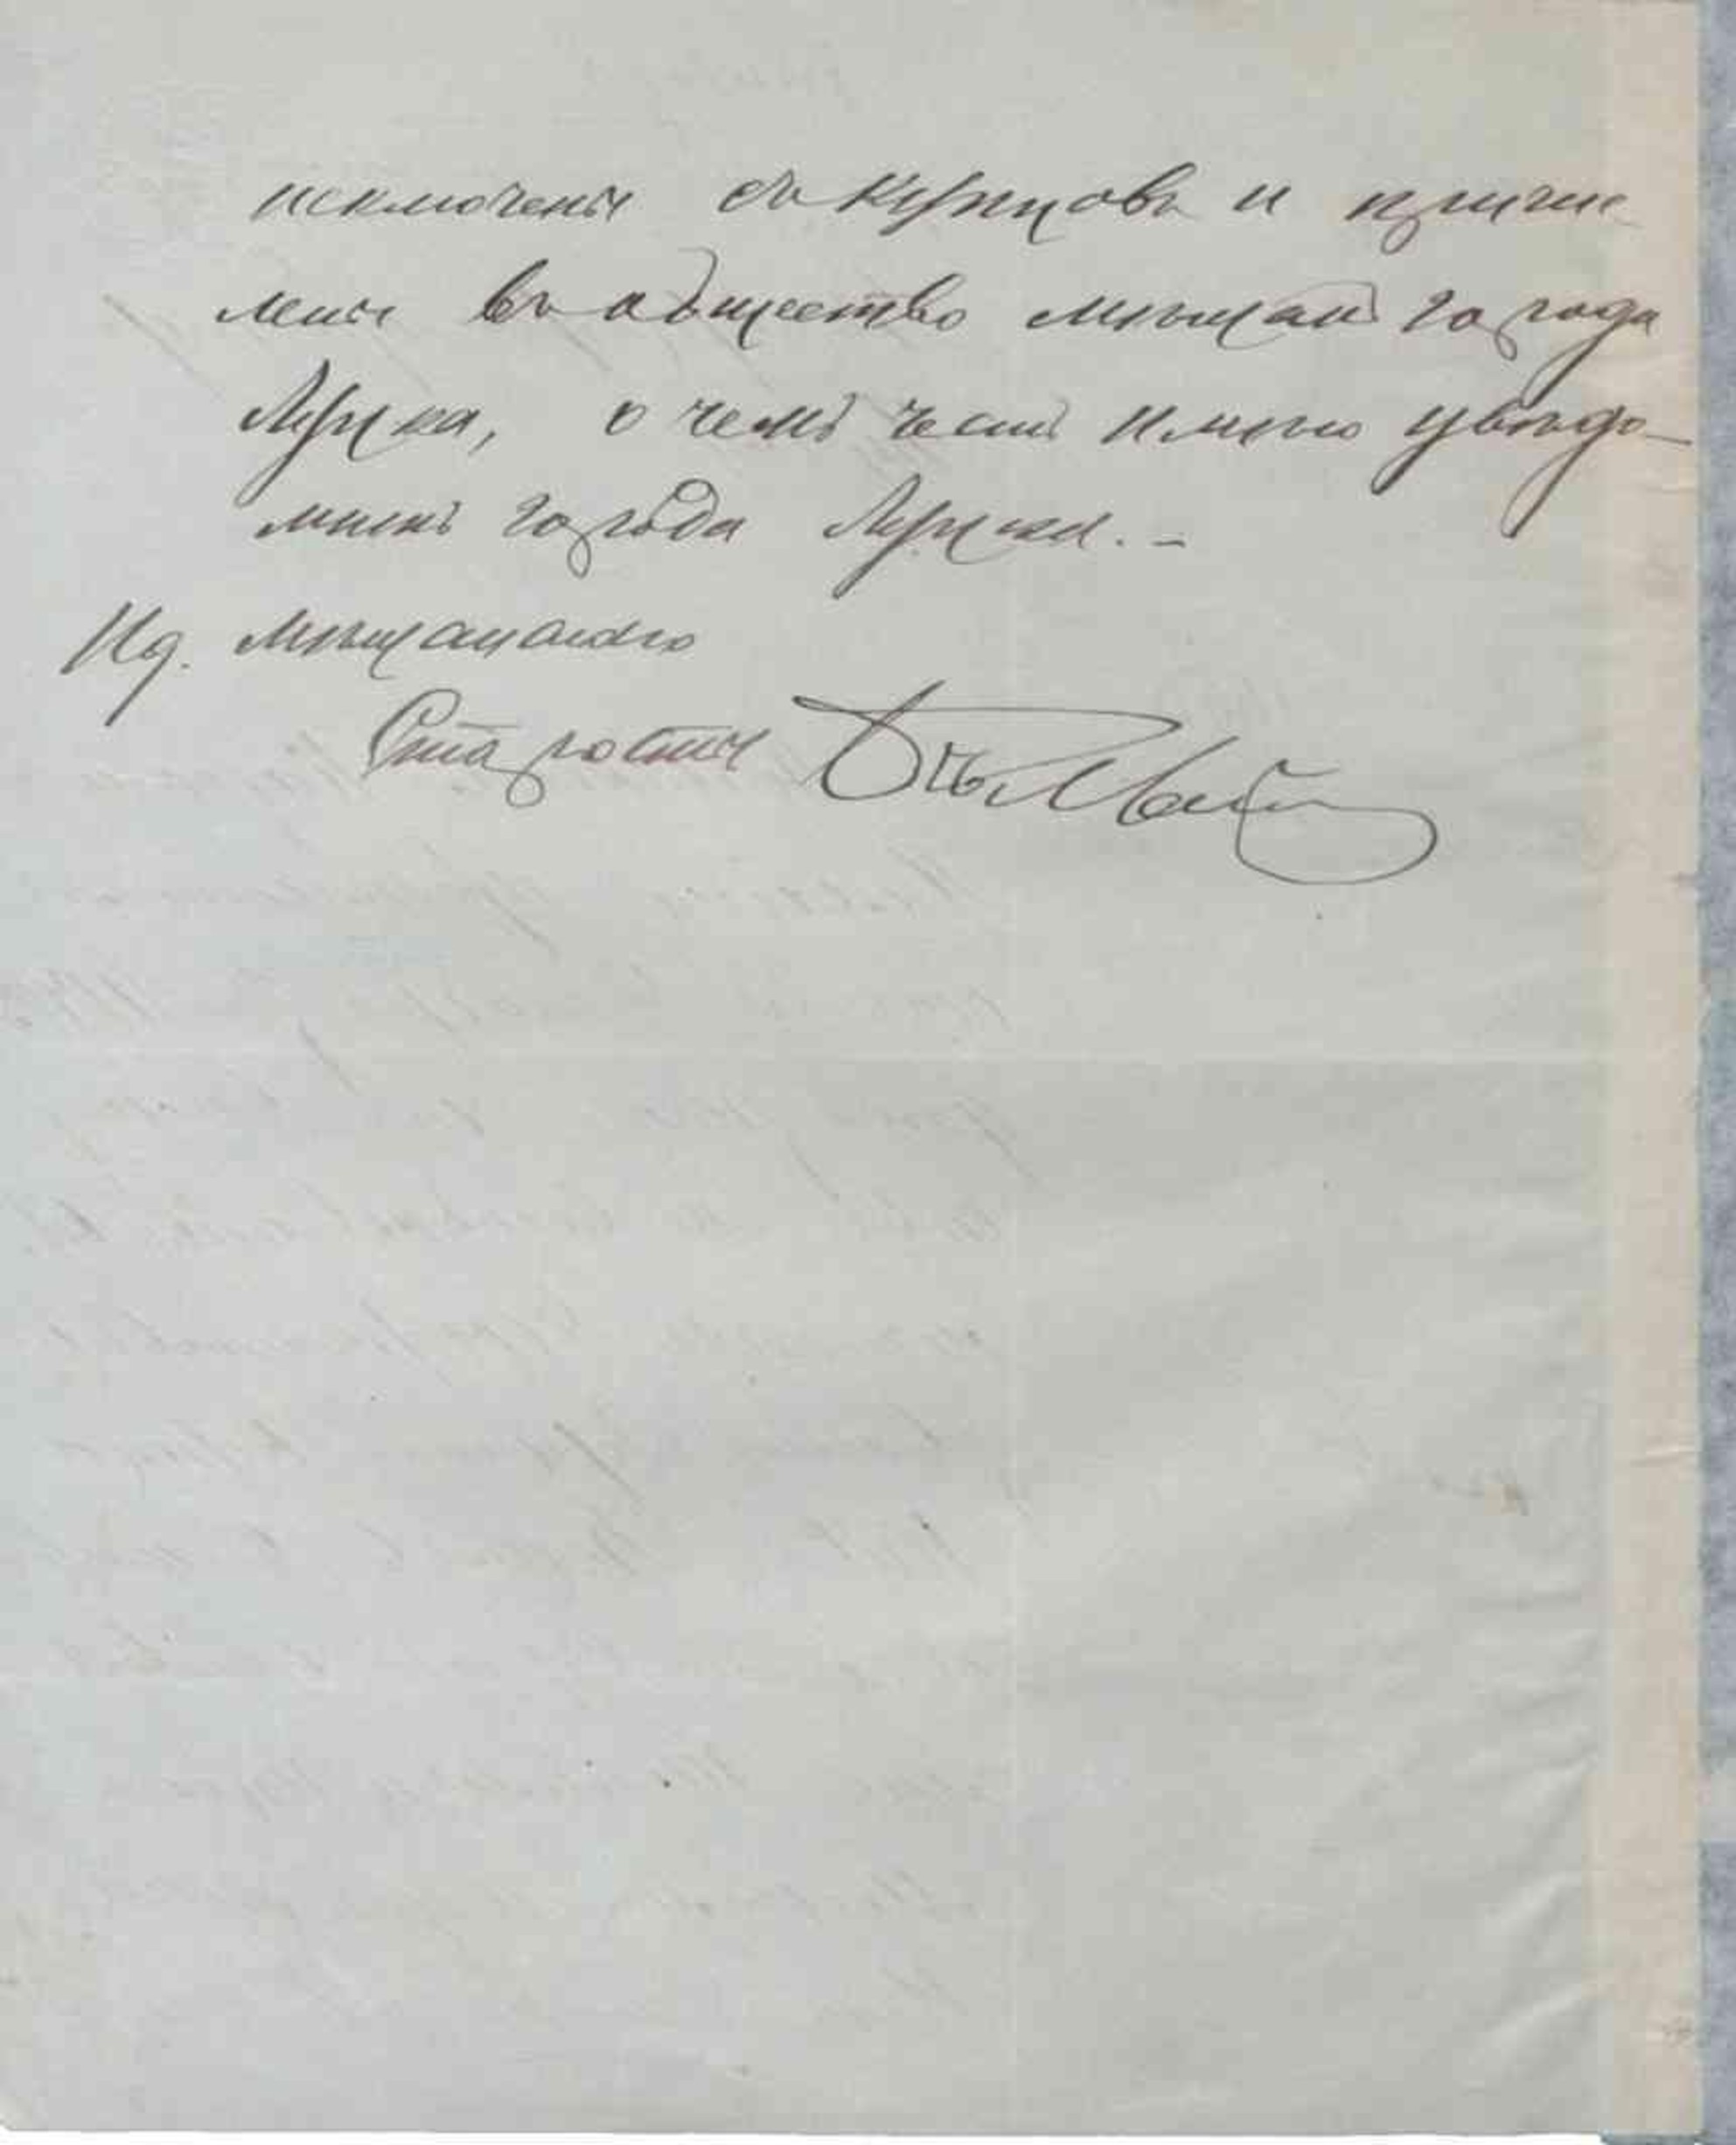 исключены съ купцовъ и причис
лены въ общество мѣщанъ города
Луцка, о чемъ честь имѣю увѣдо-
мить города Луцка. -
Ид. мѣщанскаго
Старосты